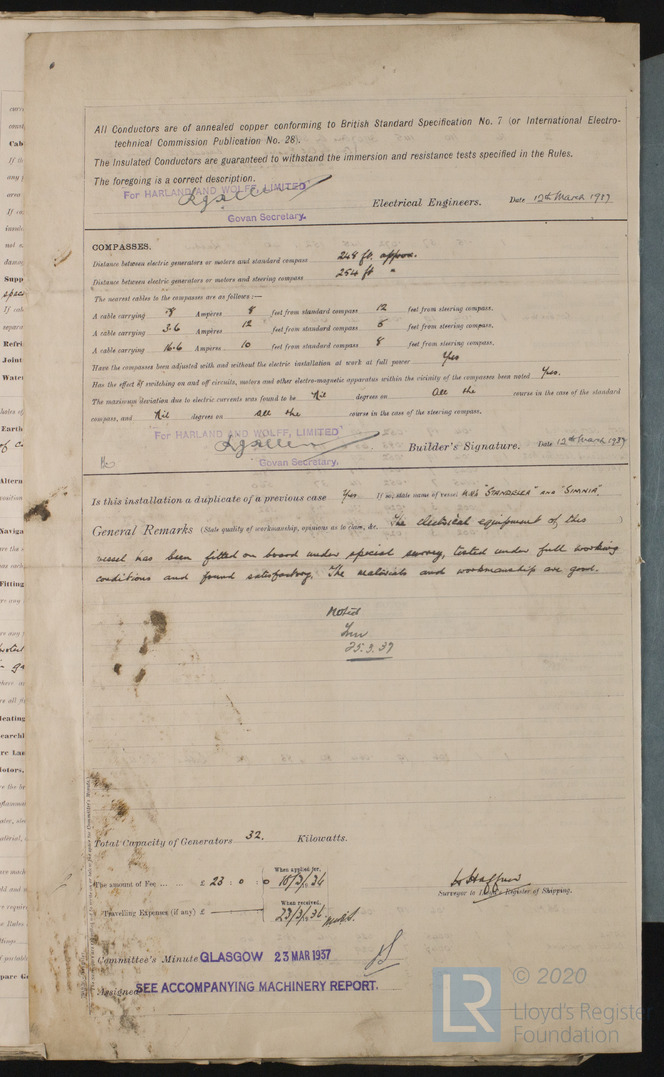 All Conductors are of annealed copper conforming to British Standard Specification No. 7 (or International Electro-
technical Commission Publication No. 28).
The Insulated Conductors are guaranteed to withstand the immersion and resistance tests specified in the Rules.
The foregoing is a correct description.
For HARLAND AND WOLFF, LIMITED
Electrical Engineers. Date 12th March 1937
Govan Secretary.
COMPASSES.
Distance between electric generators or motors and standard compass 248 ft. approx.
Distance between electric generators or motors and steering compass 254 ft "
The nearest cables to the compasses are as follows:—
A cable carrying .8 Ampères 8 feet from standard compass 12 feet from steering compass.
A cable carrying 3.6 Ampères 12 feet from standard compass 5 feet from steering compass.
A cable carrying 16.6 Ampères 10 feet from standard compass 8 feet from steering compass.
Have the compasses been adjusted with and without the electric installation at work at full power Yes
Has the effect of switching on and off circuits, motors and other electro-magnetic apparatus within the vicinity of the compasses been noted Yes.
The maximum deviation due to electric currents was found to be Nil degrees on All the course in the case of the standard
compass, and Nil degrees on all the course in the case of the steering compass.
For HARLAND AND WOLFF, LIMITED
Builder's Signature. Date 12th March 1937
Govan Secretary.
Is this installation a duplicate of a previous case Yes. If so, state name of vessel "STANDELLA" AND "SIMNIA"
General Remarks (State quality of workmanship, opinions as to class, &c. The electrical equipment of this )
vessel has been fitted on board under special survey, tested under full working
conditions and found satisfactory. The materials and workmanship are good.
Noted
25.3.37
Total Capacity of Generators 32. Kilowatts.
The amount of Fee ... ... £ 23 : 0 : 0
When applied for,
Travelling Expenses (if any) £
When received,
Surveyor to Lloyd's Register of Shipping.
Committee's Minute GLASGOW 23 MAR 1937
Assigned SEE ACCOMPANYING MACHINERY REPORT.
LR
© 2020
Lloyd's Register
Foundation